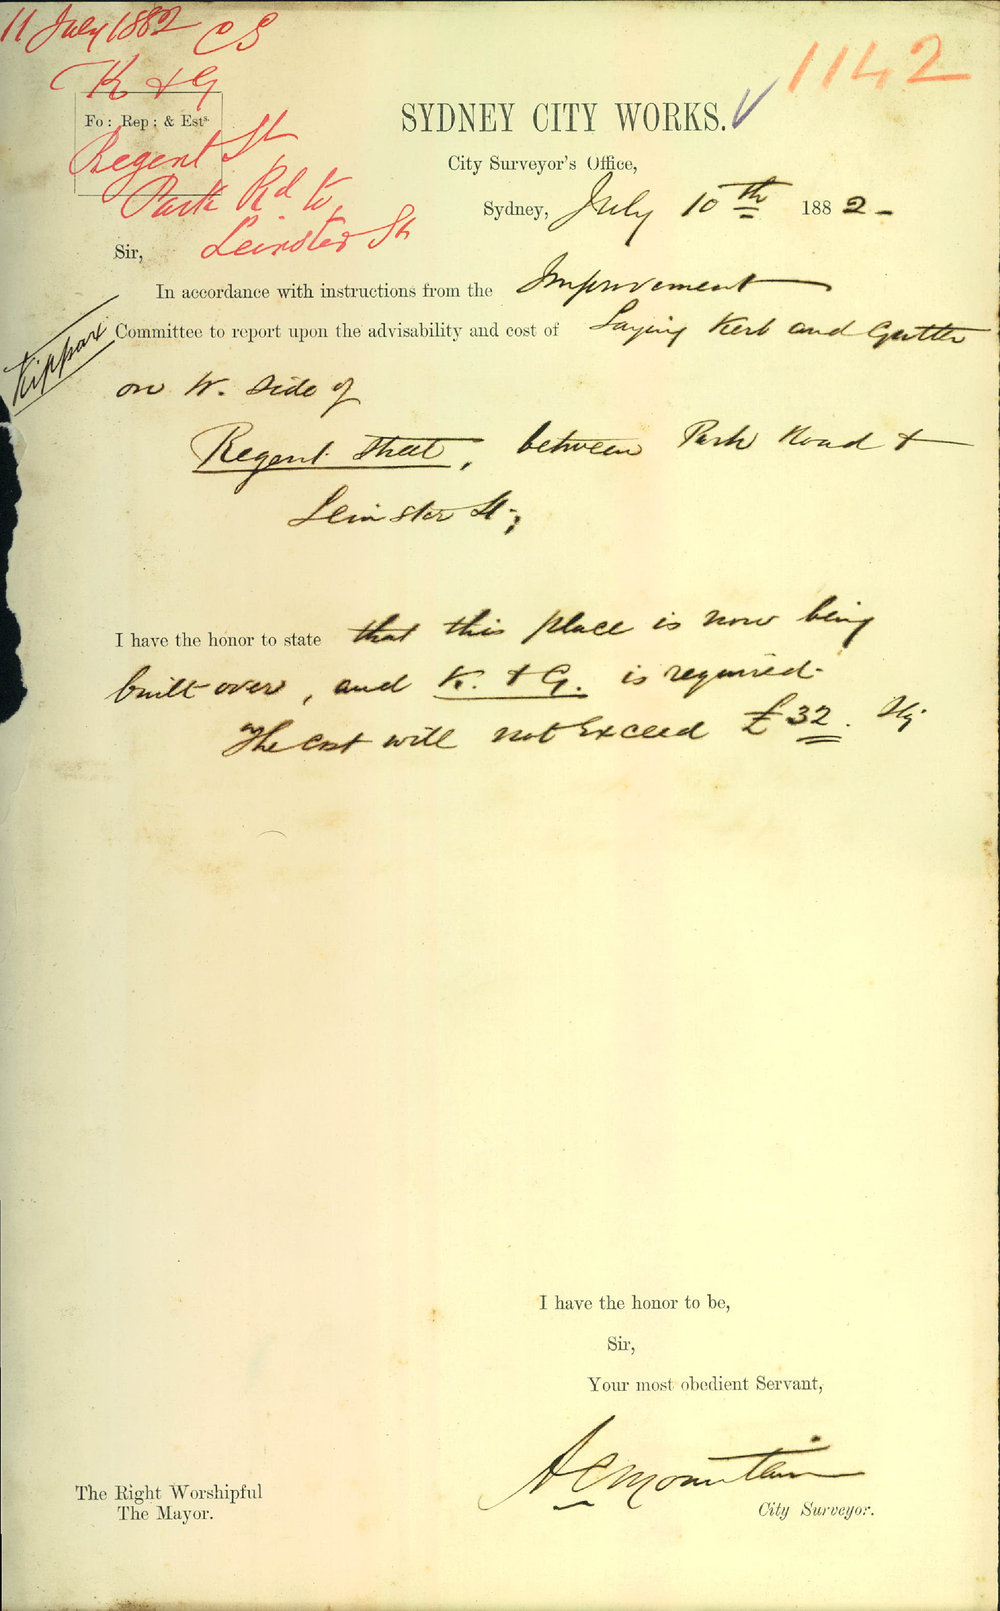 11 July 1882 CS
1142
K & G
Fo: Rep: & Ests.
Regent St
Park Rd to
Leinster St
SYDNEY CITY WORKS.
City Surveyor's Office,
Sydney, July 10th 1882-
Sir,
In accordance with instructions from the Improvement
Kippax
Committee to report upon the advisability and cost of Laying Kerb and Gutter
on W. side of
Regent Street, between Park Road &
Leinster St;
I have the honor to state that this place is now being
built over, and K. & G. is required.
The cost will not exceed £32.
I have the honor to be,
Sir,
Your most obedient Servant,
A C Mountain
City Surveyor.
The Right Worshipful
The Mayor.